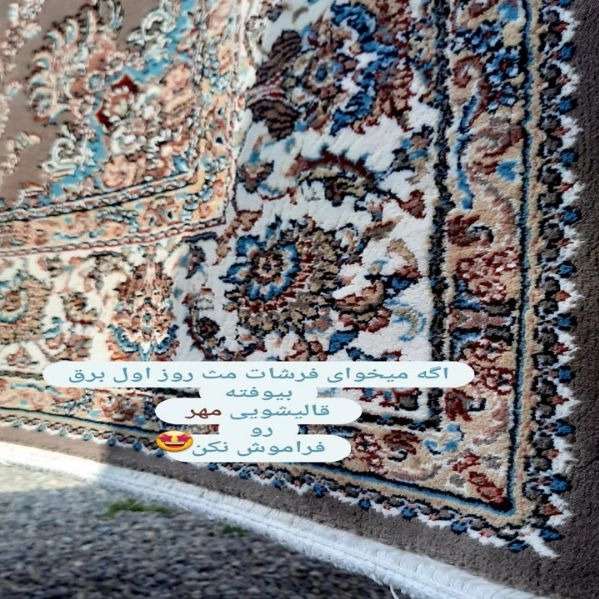 اگه میخوای فرشات مث روز اول برق
بیوفته
قالیشویی مهر
رو
فراموش نکن🤩